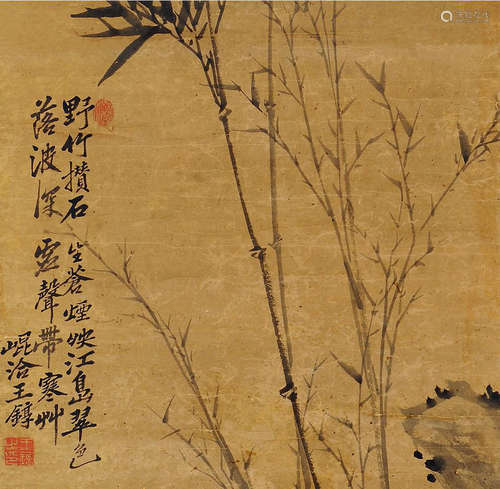 野竹攢石生蒼煙映江島翠色
落波深虛聲帶寒艸
崐洽王錞